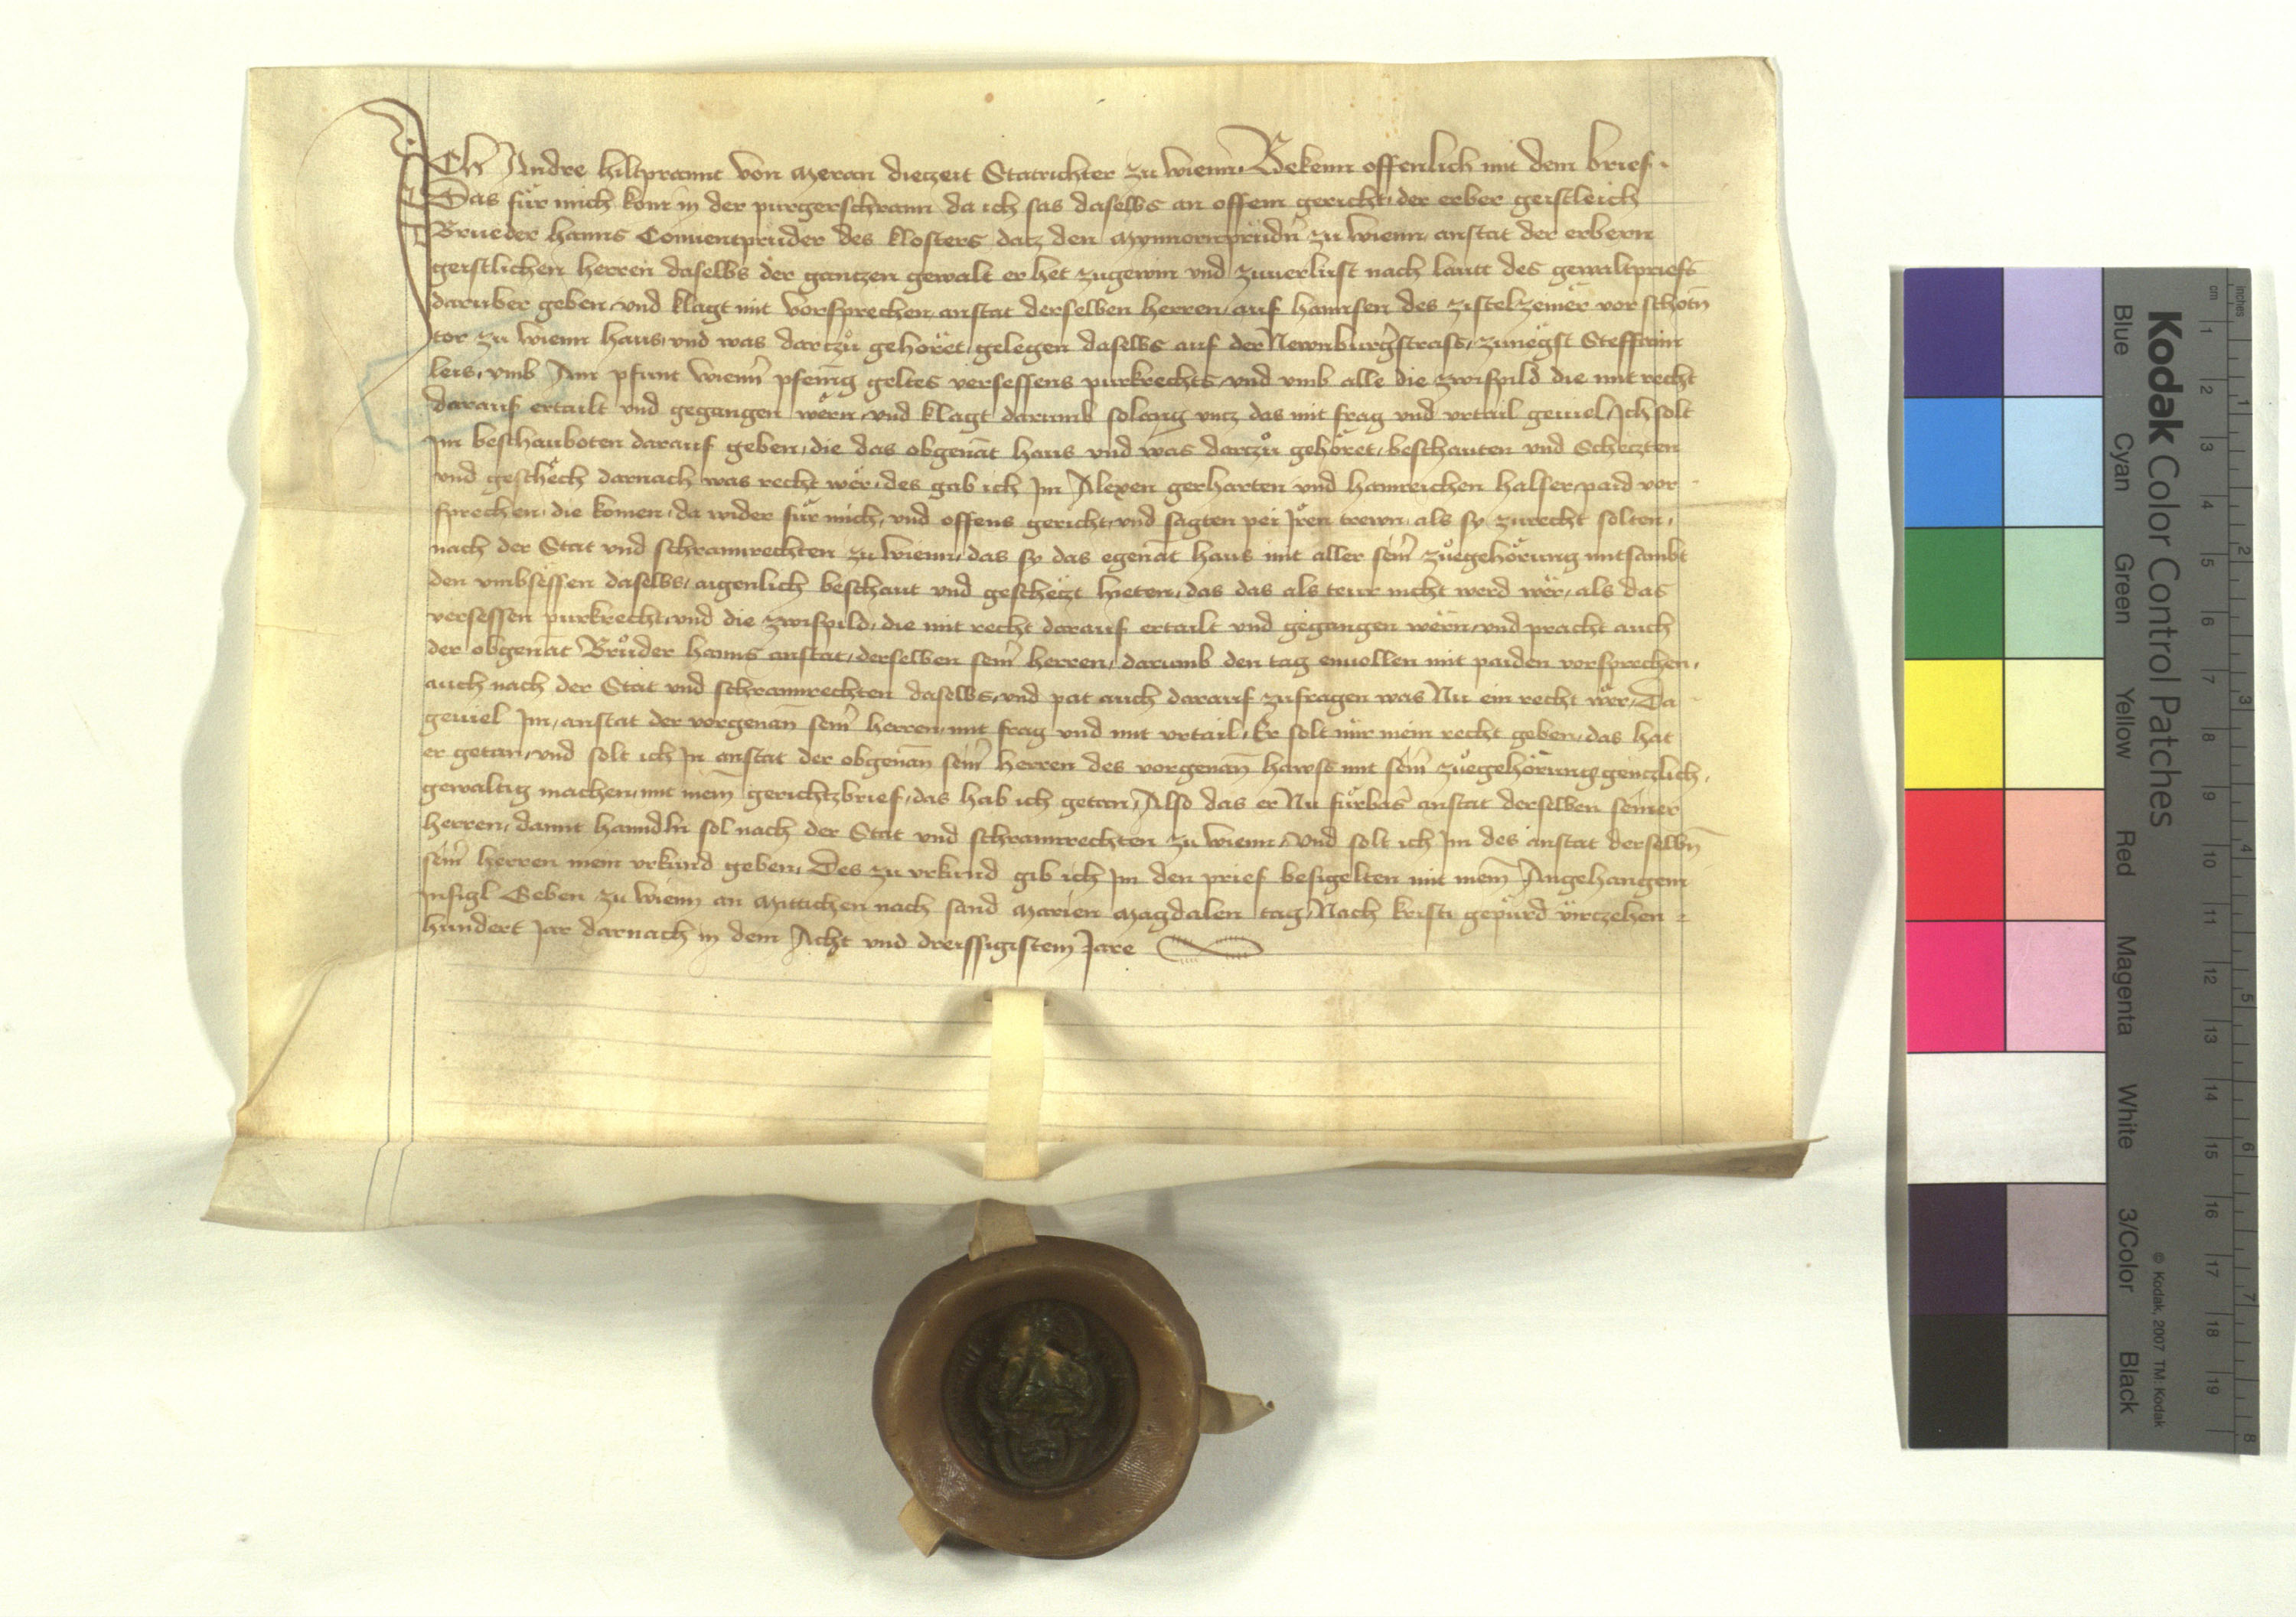 Ich Andre hiltprannt von Meran diezeit Statrichter zu wienn Bekenn offenlich mit dem brief
Das für mich kom in der purgerschrann da ich sas daselbs an offem gericht der erber geistleich
Brueder hanns Conuentprüder des klosters datz den Mynnernprüdn̄ zu wienn anstat der erbern
geistlichen herren daselbs der gantzen gewalt er het zugewin vnd zuuerlust nach lautt des gewaltpriefs
daruber geben vnd klagt mit vorsprechen anstat derselben herren auf hannsen des zistelzemër vor schotn̄
tor zu wienn haus vnd was dartzů gehöret gelegen daselbs auf der Newnburgerstrass zunëgst Steffann
leis vmb Ain pfunt wienn̄ pfennīg geltes versessens purkrechts vnd vmb alle die zwispild die mit recht
darauf ertailt vnd gegangen wërn vnd klagt darumb solang vntz das mit frag vnd vrtail geuiel Ich solt
Im beschauboten darauf geben die das obgenāt haus vnd was dartzů gehöret beschauten vnd Schetzten
vnd geschëch darnach was recht wër des gab ich Im Alexen gerharten vnd hainreichen halser paid vor
sprechen die komen da wider für mich vnd offens gericht vnd sagten pei Iren trewn als sy zurecht solten
nach der Stat vnd schrannrechten zu wienn das sy das egenāt haus mit aller sein̄ zůgehörung mitsambt
den vmbsëssen daselbs aigenlich beschaut vnd geschëtzt hieten das das als teur nicht werd wër als das
versessen purkrecht vnd die zwispild die mit recht darauf ertailt vnd gegangen wërn vnd pracht auch
der obgenāt Brůder hanns anstat derselben sein̄ herren darumb den tag enuollen mit paiden vorsprechen
auch nach der Stat vnd schrannrechten daselbs vnd pat auch darauf zufragen was Nu ein recht wër Da
geuiel Im anstat der vorgenan̄ sein̄ herren mit frag vnd mit vrtail Er solt mir mein recht geben das hat
er getan vnd solt ich In anstat der obgenan̄ sein̄ herren des vorgenan̄ hawss mit sein̄ zůgehörung gentzlich
gewaltig machen mit meīm gerichtzbrief das hab ich getan Also das er Nu fürbas anstat derselben seiner
herren damit hanndln sol nach der Stat vnd schrannrechten zu wienn Vnd solt ich Im des anstat derselbn̄
sein̄ herren mein vrkund geben Des zu vrkund gib ich Im den prief besigelten mit meīm Angehangem
insigl Geben zu wienn an Mittichen nach sand Marien Magdalen tag Nach kristi gepürd virczehen
hundert Jar darnach in dem Acht vnd dreissigistem Jare
Kodak Color Control Patches
Blue Cyan Green Yellow Red Magenta White 3/Color Black
© Kodak, 2007 TM: Kodak
cm 1 2 3 4 5 6 7 8 9 10 11 12 13 14 15 16 17 18 19
inches 1 2 3 4 5 6 7 8